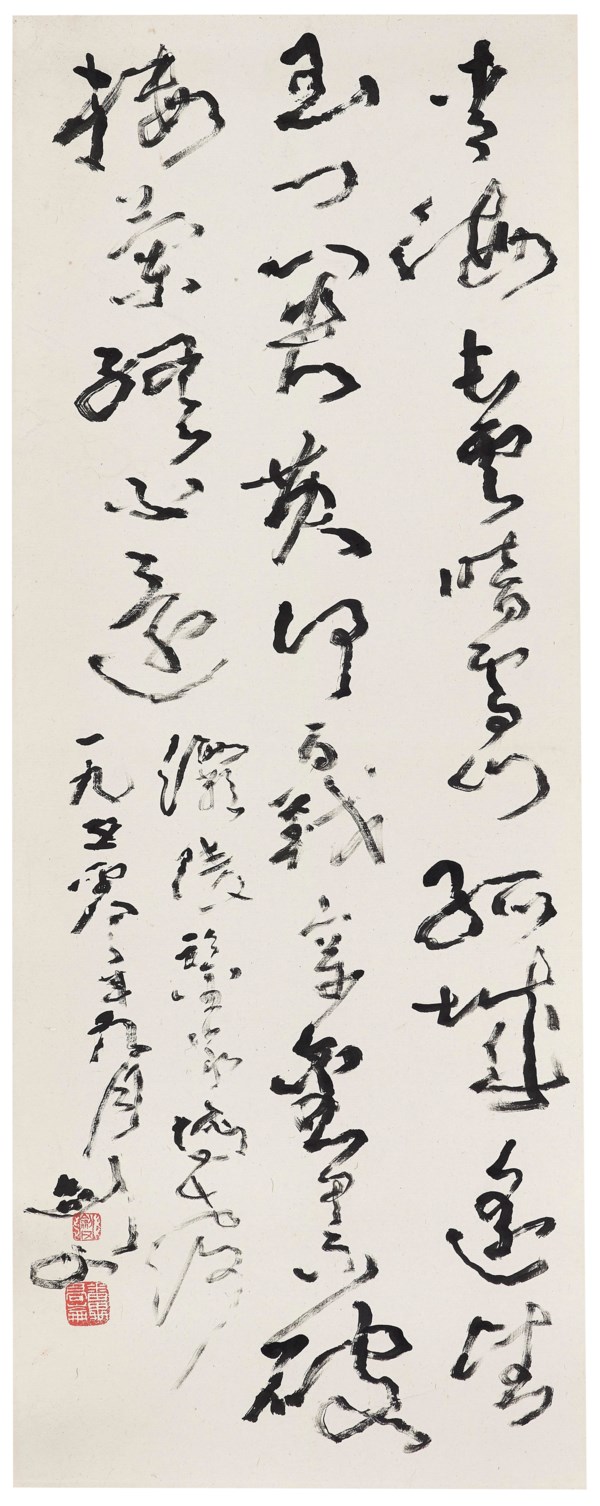 青海長雲暗雪山孤城遙望
玉門關黃沙百戰穿金甲不破
樓蘭終不還
一九五零年九月劍父